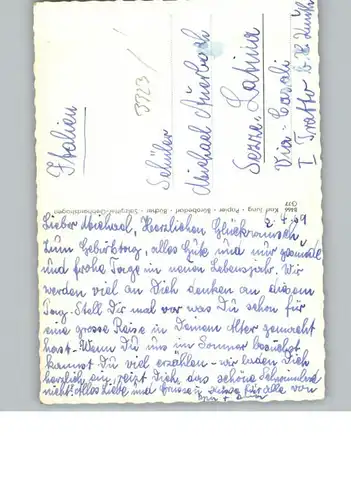 Italien
5723/
Schüler
Michael Auerbach
Sezze-Latina
Via-Casali
I Tratto
8466 Karl Jung - Papier - Bürobedarf - Bücher - Salzgitter-
G77
2.4.69
Lieber Michael, Herzlichen Glückwunsch
zum Geburtstag, alles Gute und nur gesunde
und frohe Tage im neuen Lebensjahr. Wir
werden viel an Dich denken an diesem
Tag. Stell Dir mal vor was Du schon für
eine grosse Reise in Deinem Alter gemacht
hast. Wenn Du uns im Sommer besuchst
kannst Du viel erzählen - wir laden Dich
herzlich ein, reizt Dich das schöne
nicht? Alles Liebe und Grüsse für alle von